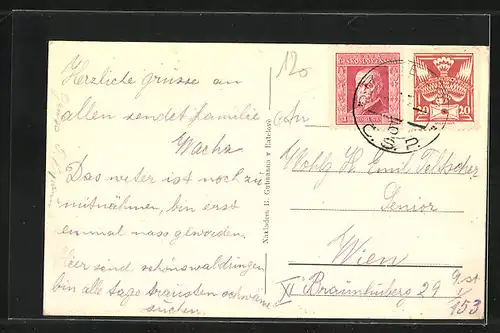 120
Herzliche grüsse an
allen sendet familie
Wacha
Das weter ist noch zu
mitnähmen, bin erst
einmal nass geworden.
Hier sind schöns waldungen
bin alle tage drausten schwäme
suchen.
Nakladem B. v
An
Wohlg H. Emil Feltscher
Senior
Wien
XII Braunhubерg 29 9. st
153
ČESKOSLOVENSKO
20 20
Č.S.R.